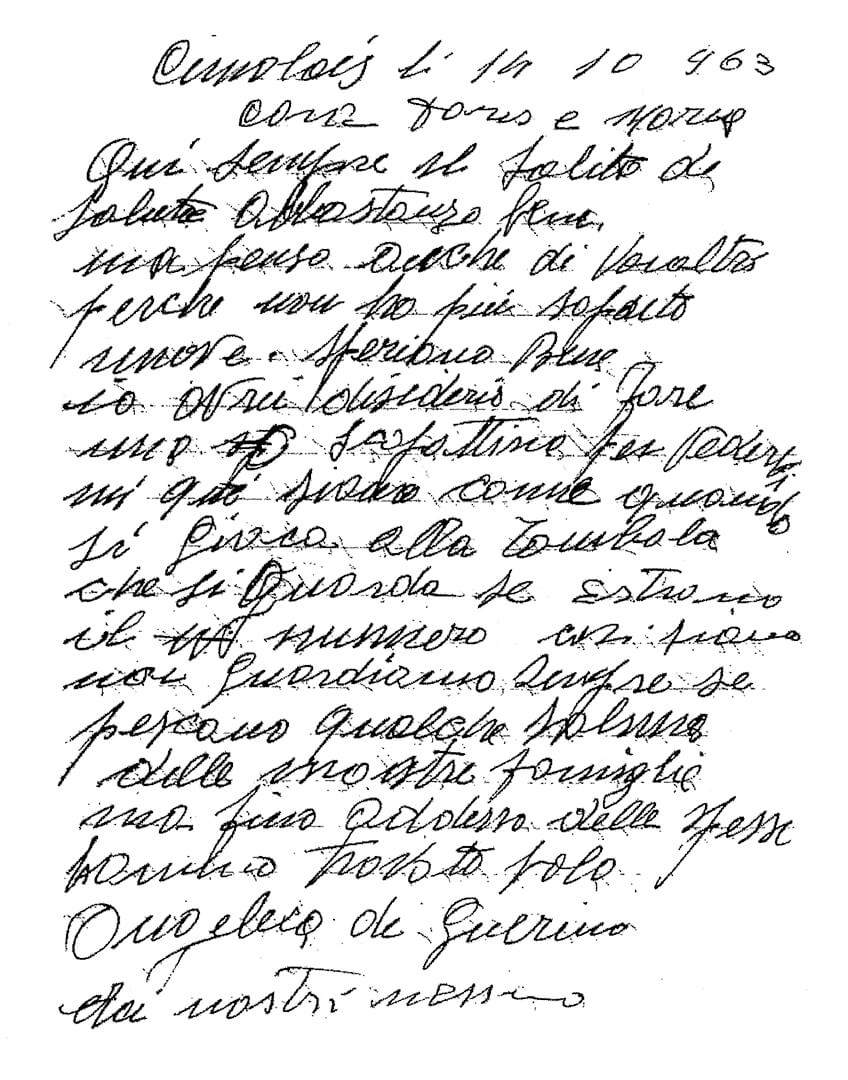 Cimolais li 14 10 963
cara Doris e Maria
Qui sempre il solito di
salute abbastanza beni
ma penso anche di voialtri
perche non ho più saputo
nnove. speriano Bene
io avrei disiderio di fare
uno scapattino per vedervi
mi qui siano come quando
si Gioca alla Tombola
che si Guarda se Estrano
il nunnero cosi siano
noi Guardiano sempre se
pescano qualche salma
delle nostre famiglie
ma fino addesso delle
hanno trovato solo
Angelica de Guerino
dai nostri nessuno